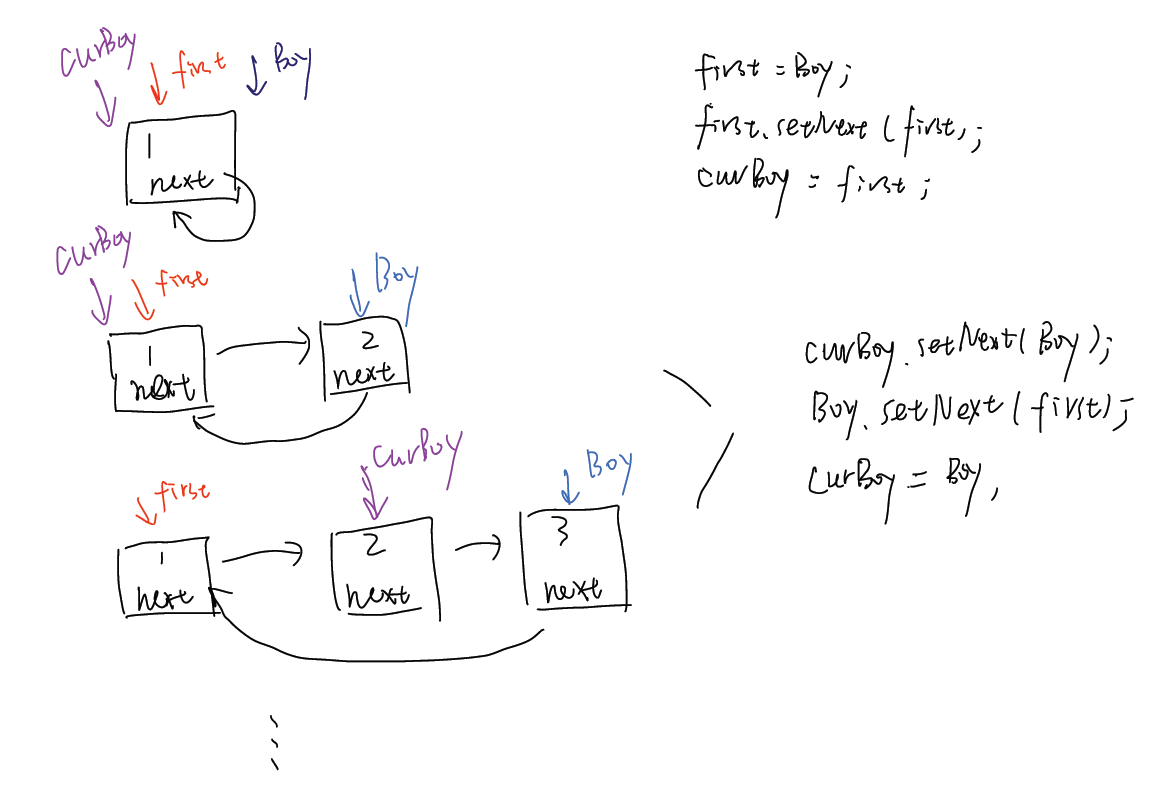 curBoy first Boy
1
next
first = Boy;
first.setNext(first,;
curBoy = first;
curBoy first Boy
1 2
next next
curBoy.setNext(Boy);
Boy.setNext(first);
curBoy = Boy,
first curBoy Boy
1 2 3
next next next